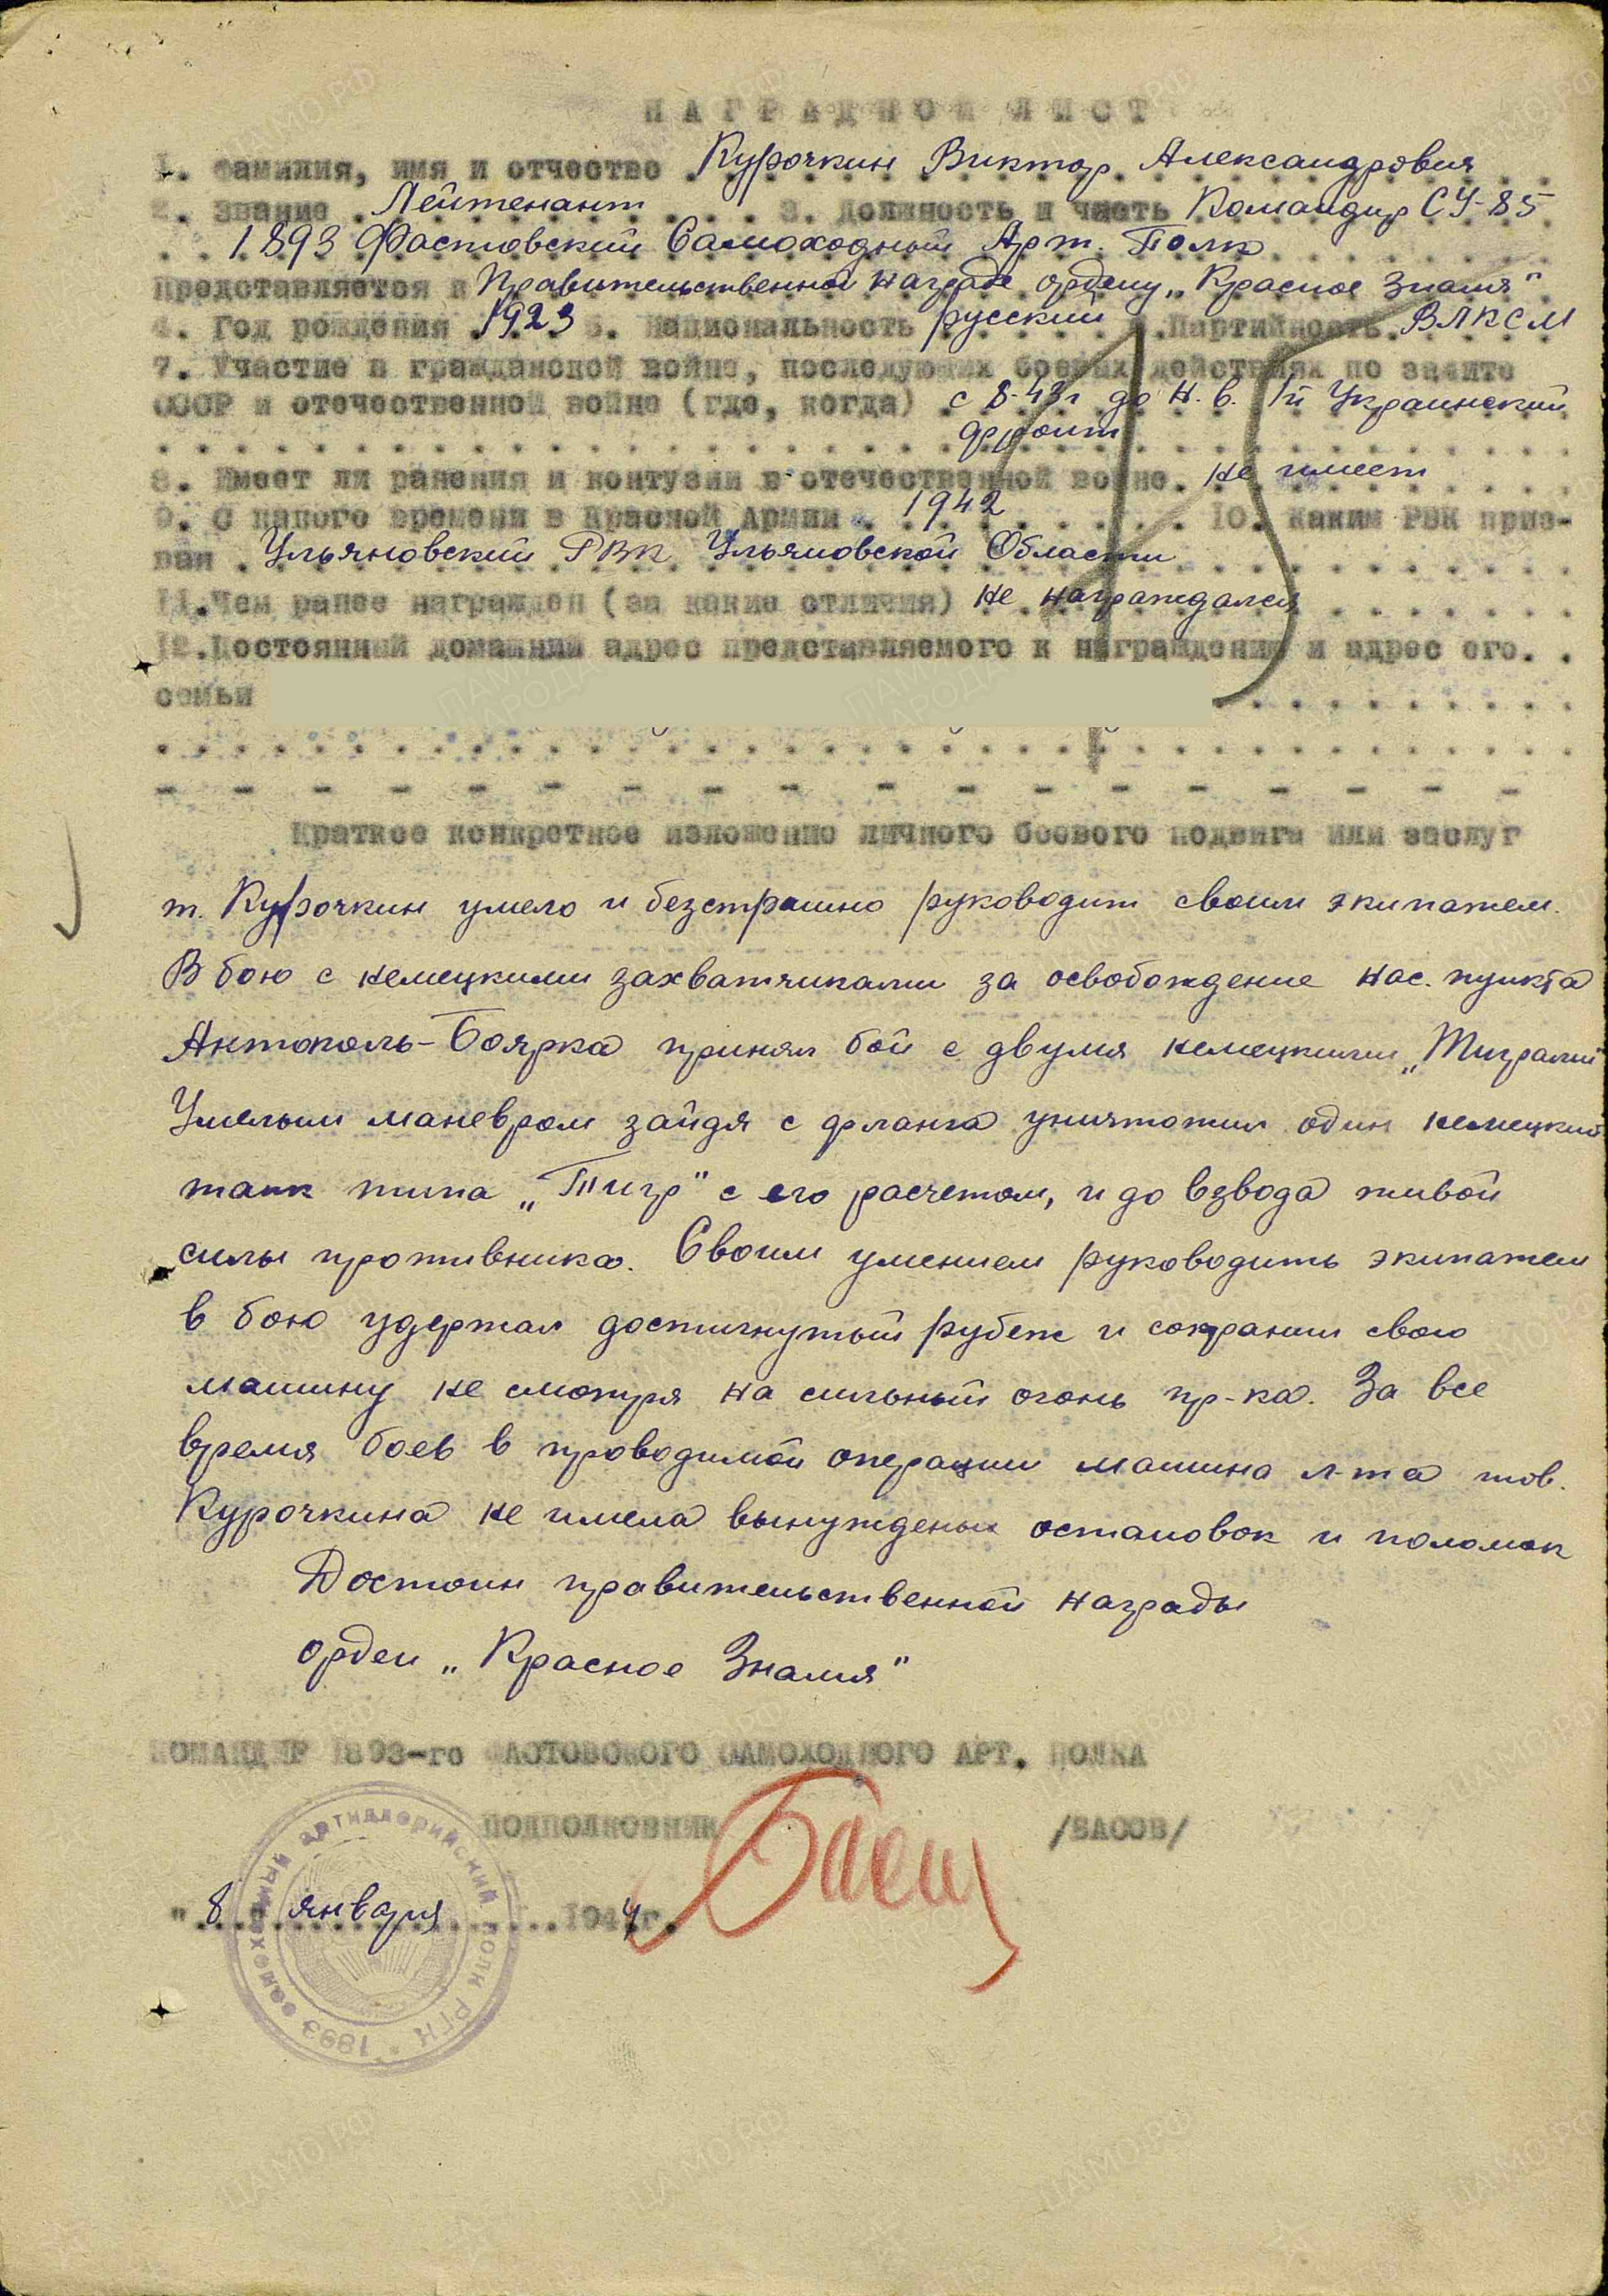 НАГРАДНОЙ ЛИСТ
1. Фамилия, имя и отчество Курочкин Виктор Александрович
2. Звание Лейтенант 3. Должность и часть Командир СУ-85
1893 Фастовский Самоходный Арт. Полк
Представляется к Правительственной награде ордену „Красное Знамя"
4. Год рождения 1923 5. Национальность русский Партийность ВЛКСМ
7. Участие в гражданской войне, последующих боевых действиях по защите
СССР и отечественной войне (где, когда) с 8-43г до н.в. 1й Украинский
фронт
8. Имеет ли ранения и контузии в отечественной войне. не имеет
9. С какого времени в Красной Армии 1942 10. Каким РВК приз-
ван Ульяновский РВК Ульяновской Области
11. Чем ранее награжден (за какие отличия) не награждался
12. Постоянный домашний адрес представляемого к награждению и адрес его
семьи
Краткое конкретное изложение личного боевого подвига или заслуг
т. Курочкин умело и безстрашно руководит своим экипажем.
В бою с немецкими захватчиками за освобождение нас. пункта
Антополь-Боярка принял бой с двумя немецкими „Тиграми"
Умелым маневром зайдя с фланга уничтожил один немецкий
танк типа „Тигр" с его расчетом, и до взвода живой
силы противника. Своим умением руководить экипажем
в бою удержал достигнутый рубеж и сохранил свою
машину не смотря на сильный огонь пр-ка. За все
время боев в проводимой операции машина л-та тов.
Курочкина не имела вынужденых остановок и поломок
Достоин правительственной награды
орден „Красное Знамя"
КОМАНДИР 1893-го ФАСТОВСКОГО САМОХОДНОГО АРТ. ПОЛКА
ПОДПОЛКОВНИК Басов /БАСОВ/
"8 января 1944г.
самоходный артиллерийский полк РГК 1893
ЦАМО.РФ